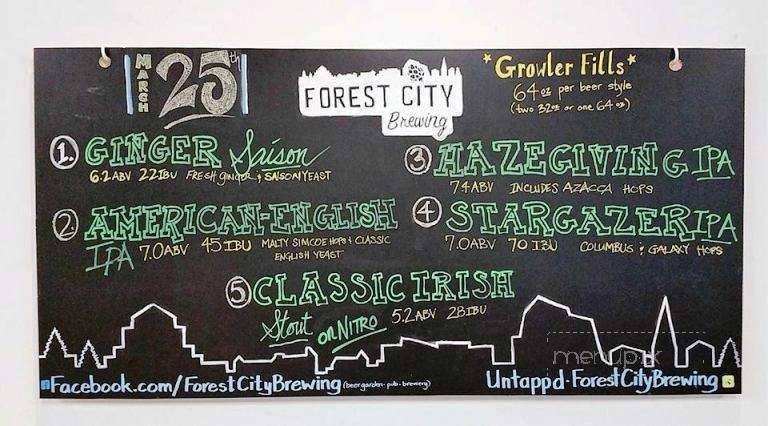 MARCH 25th
FOREST CITY
Brewing
*Growler Fills*
64oz per beer style
(two 32oz or one 64oz)
1. GINGER Saison
6.2ABV 22IBU FRESH ginger & SAISON YEAST
2. AMERICAN-ENGLISH
IPA 7.0ABV 45IBU MALTY SIMCOE HOPS & CLASSIC
ENGLISH YEAST
3 HAZEGIVING IPA
7.4ABV INCLUDES AZACCA HOPS
4 STARGAZER IPA
7.0ABV 70 IBU COLUMBUS & GALAXY HOPS
5 CLASSIC IRISH
Stout ON NITRO 5.2ABV 28IBU
Facebook.com/ForestCityBrewing (beergarden-pub-brewery)
Untappd-ForestCityBrewing